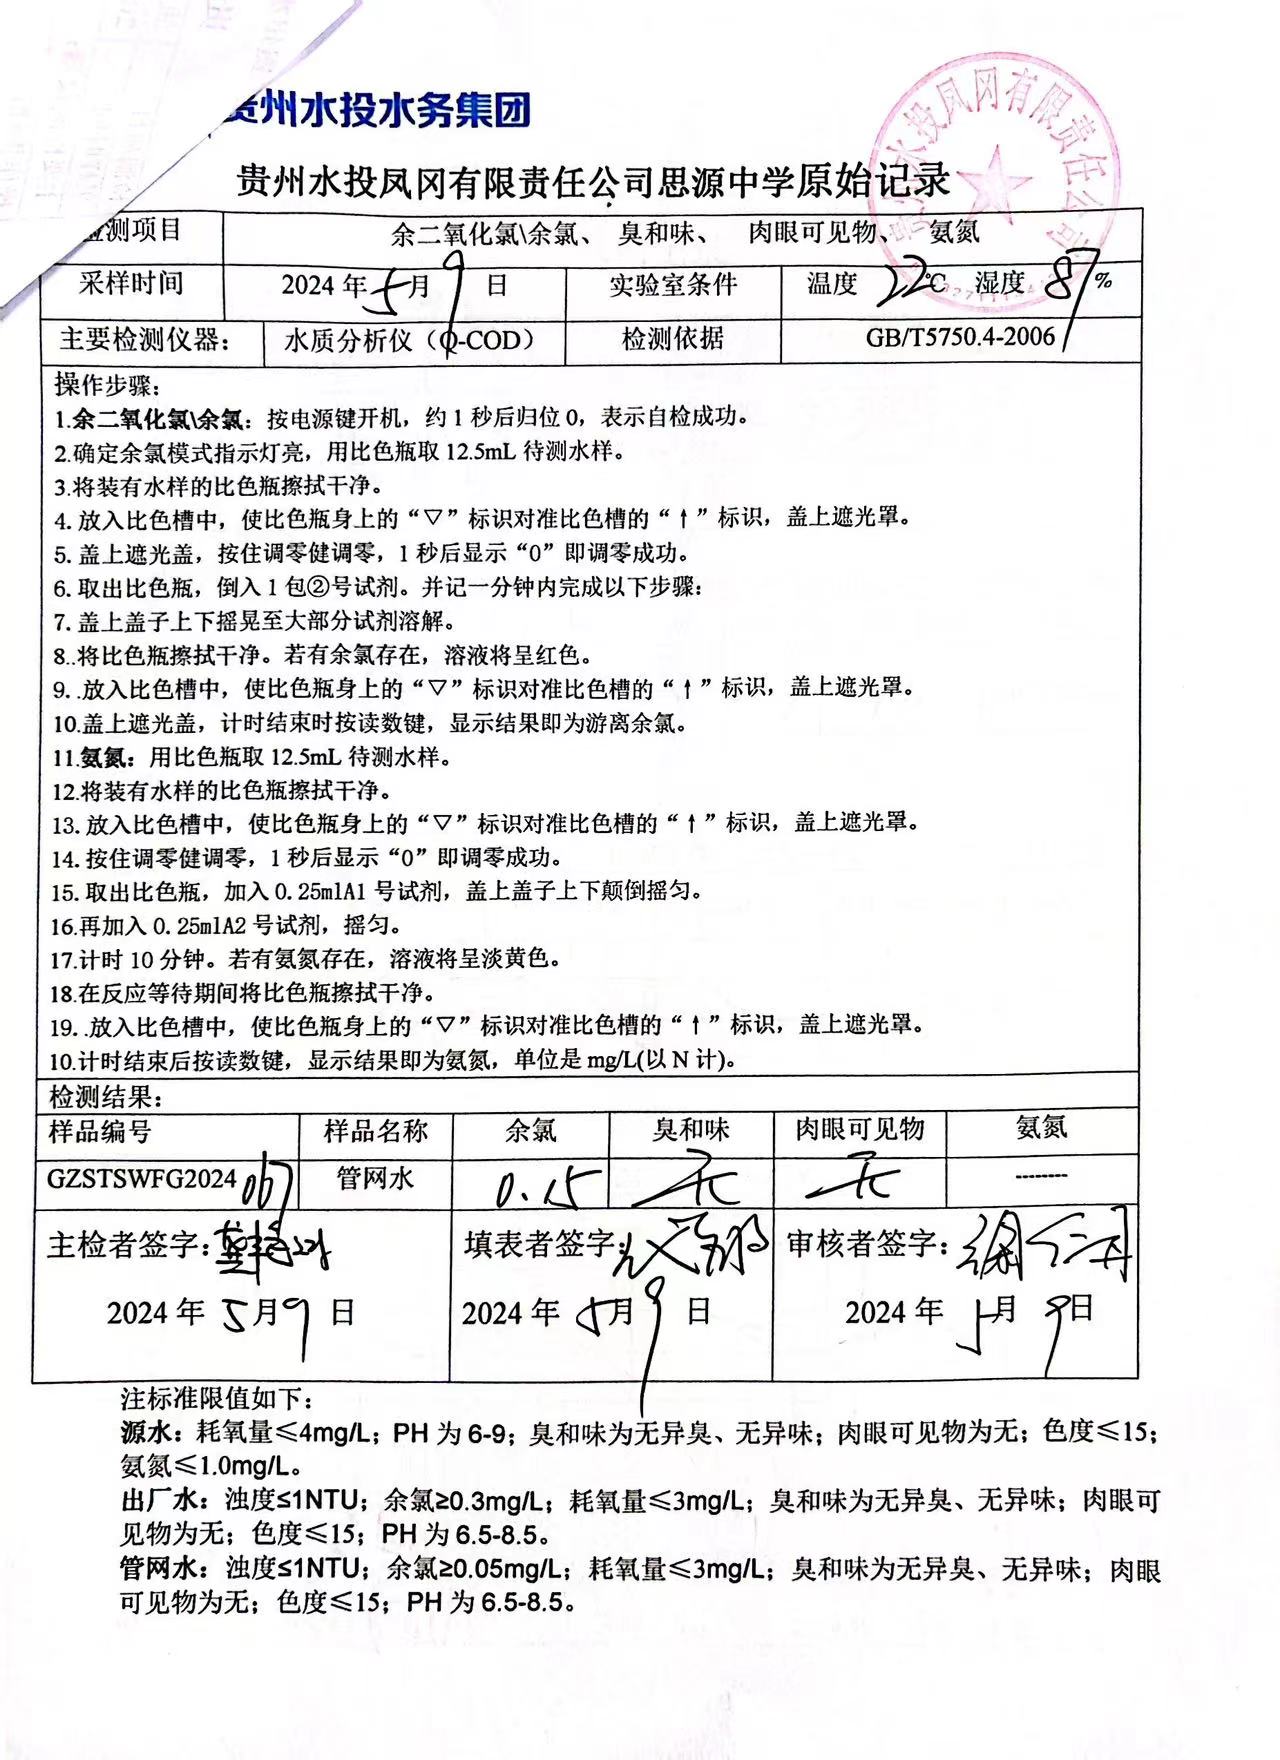 贵州水投水务集团
贵州水投凤冈有限责任公司思源中学原始记录
检测项目 余二氧化氯\余氯、 臭和味、 肉眼可见物、 氨氮
采样时间 2024年5月9日 实验室条件 温度22℃ 湿度87%
主要检测仪器: 水质分析仪(Q-COD) 检测依据 GB/T5750.4-2006
操作步骤:
1.余二氧化氯\余氯:按电源键开机,约1秒后归位0,表示自检成功。
2.确定余氯模式指示灯亮,用比色瓶取12.5mL待测水样。
3.将装有水样的比色瓶擦拭干净。
4. 放入比色槽中,使比色瓶身上的“▽”标识对准比色槽的“↑”标识,盖上遮光罩。
5. 盖上遮光盖,按住调零健调零,1秒后显示“0”即调零成功。
6. 取出比色瓶,倒入1包②号试剂。并记一分钟内完成以下步骤:
7. 盖上盖子上下摇晃至大部分试剂溶解。
8..将比色瓶擦拭干净。若有余氯存在,溶液将呈红色。
9. .放入比色槽中,使比色瓶身上的“▽”标识对准比色槽的“↑”标识,盖上遮光罩。
10.盖上遮光盖,计时结束时按读数键,显示结果即为游离余氯。
11.氨氮:用比色瓶取12.5mL待测水样。
12.将装有水样的比色瓶擦拭干净。
13. 放入比色槽中,使比色瓶身上的“▽”标识对准比色槽的“↑”标识,盖上遮光罩。
14. 按住调零健调零,1秒后显示“0”即调零成功。
15. 取出比色瓶,加入0.25mlA1号试剂,盖上盖子上下颠倒摇匀。
16.再加入0.25mlA2号试剂,摇匀。
17.计时10分钟。若有氨氮存在,溶液将呈淡黄色。
18.在反应等待期间将比色瓶擦拭干净。
19. .放入比色槽中,使比色瓶身上的“▽”标识对准比色槽的“↑”标识,盖上遮光罩。
10.计时结束后按读数键,显示结果即为氨氮,单位是mg/L(以N计)。
检测结果:
样品编号 样品名称 余氯 臭和味 肉眼可见物 氨氮
GZSTSWFG2024067 管网水 0.15 无 无 --------
主检者签字: 填表者签字: 审核者签字:
2024年5月9日 2024年5月9日 2024年5月9日
注标准限值如下:
源水:耗氧量≤4mg/L;PH为6-9;臭和味为无异臭、无异味;肉眼可见物为无;色度≤15;
氨氮≤1.0mg/L。
出厂水:浊度≤1NTU;余氯≥0.3mg/L;耗氧量≤3mg/L;臭和味为无异臭、无异味;肉眼可
见物为无;色度≤15;PH为6.5-8.5。
管网水:浊度≤1NTU;余氯≥0.05mg/L;耗氧量≤3mg/L;臭和味为无异臭、无异味;肉眼
可见物为无;色度≤15;PH为6.5-8.5。